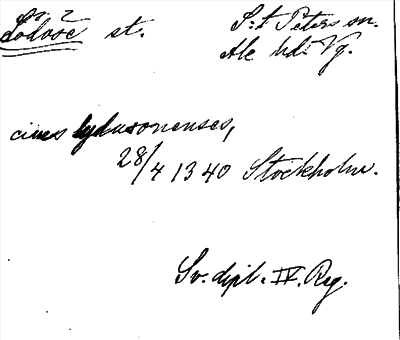 Lödöse st. S:t Peters sn.
Ale hd: Vg.
cives lydusonenses,
28/4 1340 Stockholm.
Sv. dipl. IV. Reg.